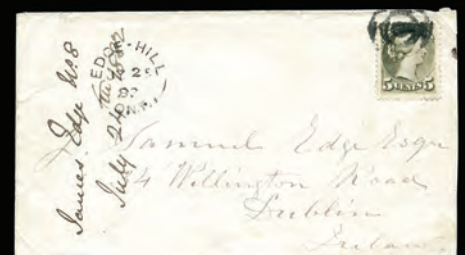 James Edge No 8
July 24th 1882
EDGE-HILL
ONT.
5 CENTS 5
J. Samuel Edge Esqr
4 Willington Road
Dublin